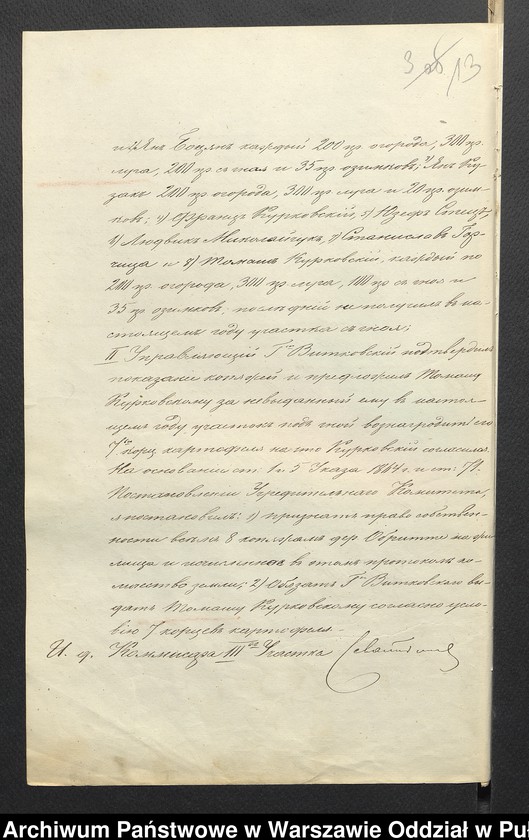 3 13
и 2) Янъ Боцянъ каждый 200 пр. огорода, 300 пр.
луга, 200 пр. съ гноя и 35 пр. озимковъ; 3) Янъ Ку-
закъ 200 пр. огорода, 300 пр. луга и 20 пр. озим-
ковъ; 4) Францъ Курковскій, 5) Юзефъ
6) Людвикъ Миколайчукъ, 7) Станиславъ Гор-
чица и 8) Томашъ Курковскій, каждый по
200 пр. огорода, 300 пр. луга, 100 пр. съ гноя и
35 пр. озимковъ; послѣдній не получилъ въ на-
стоящемъ году участка съ гноя;
II Управляющій Гнъ Витковскій подтвердилъ
показаніе копяжей и предложилъ Томашу
Курковскому за невыданный ему въ настоя-
щемъ году участокъ подъ гной вознаградить его
7ю корц. картофеля на что Курковскій согласился
На основаніи ст. 1 и 5 Указа 1864 г. и ст. 71.
Постановленія Учредительнаго Комитета,
я постановилъ: 1) признать право собствен-
ности всѣмъ 8 копяжамъ дер. Обрытте на жи-
лища и исчисленное въ этомъ протоколѣ ко-
личество земли; 2) Обязать Гна Витковскаго вы-
дать Томашу Курковскому согласно усло-
вію 7 корцевъ картофеля.
И. д. Коммисара III го Участка
Archiwum Państwowe w Warszawie Oddział w Pu